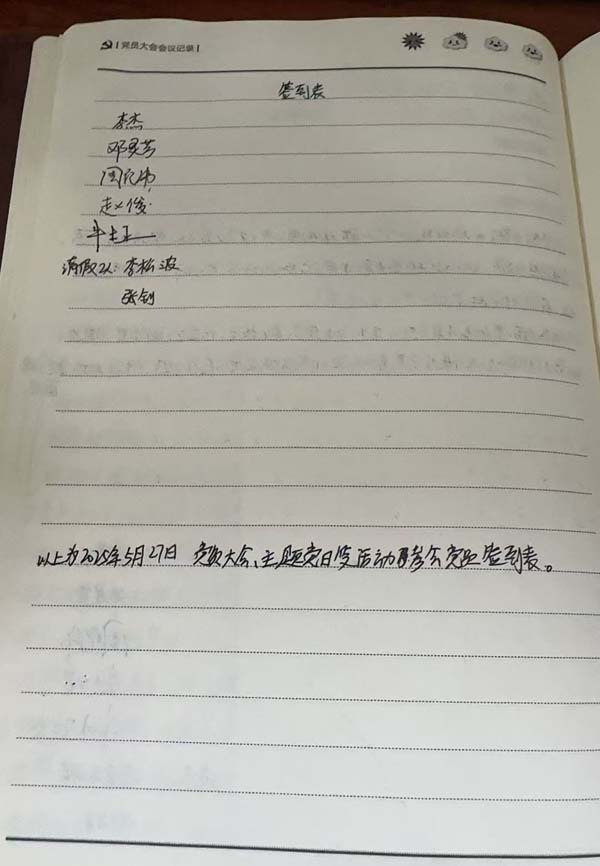 党员大会会议记录
签到表
李杰
邓灵芳
周
赵俊
牛
请假2人：李松波
张钊
以上为2025年5月27日 党员大会、主题党日活动参会党员签到表。